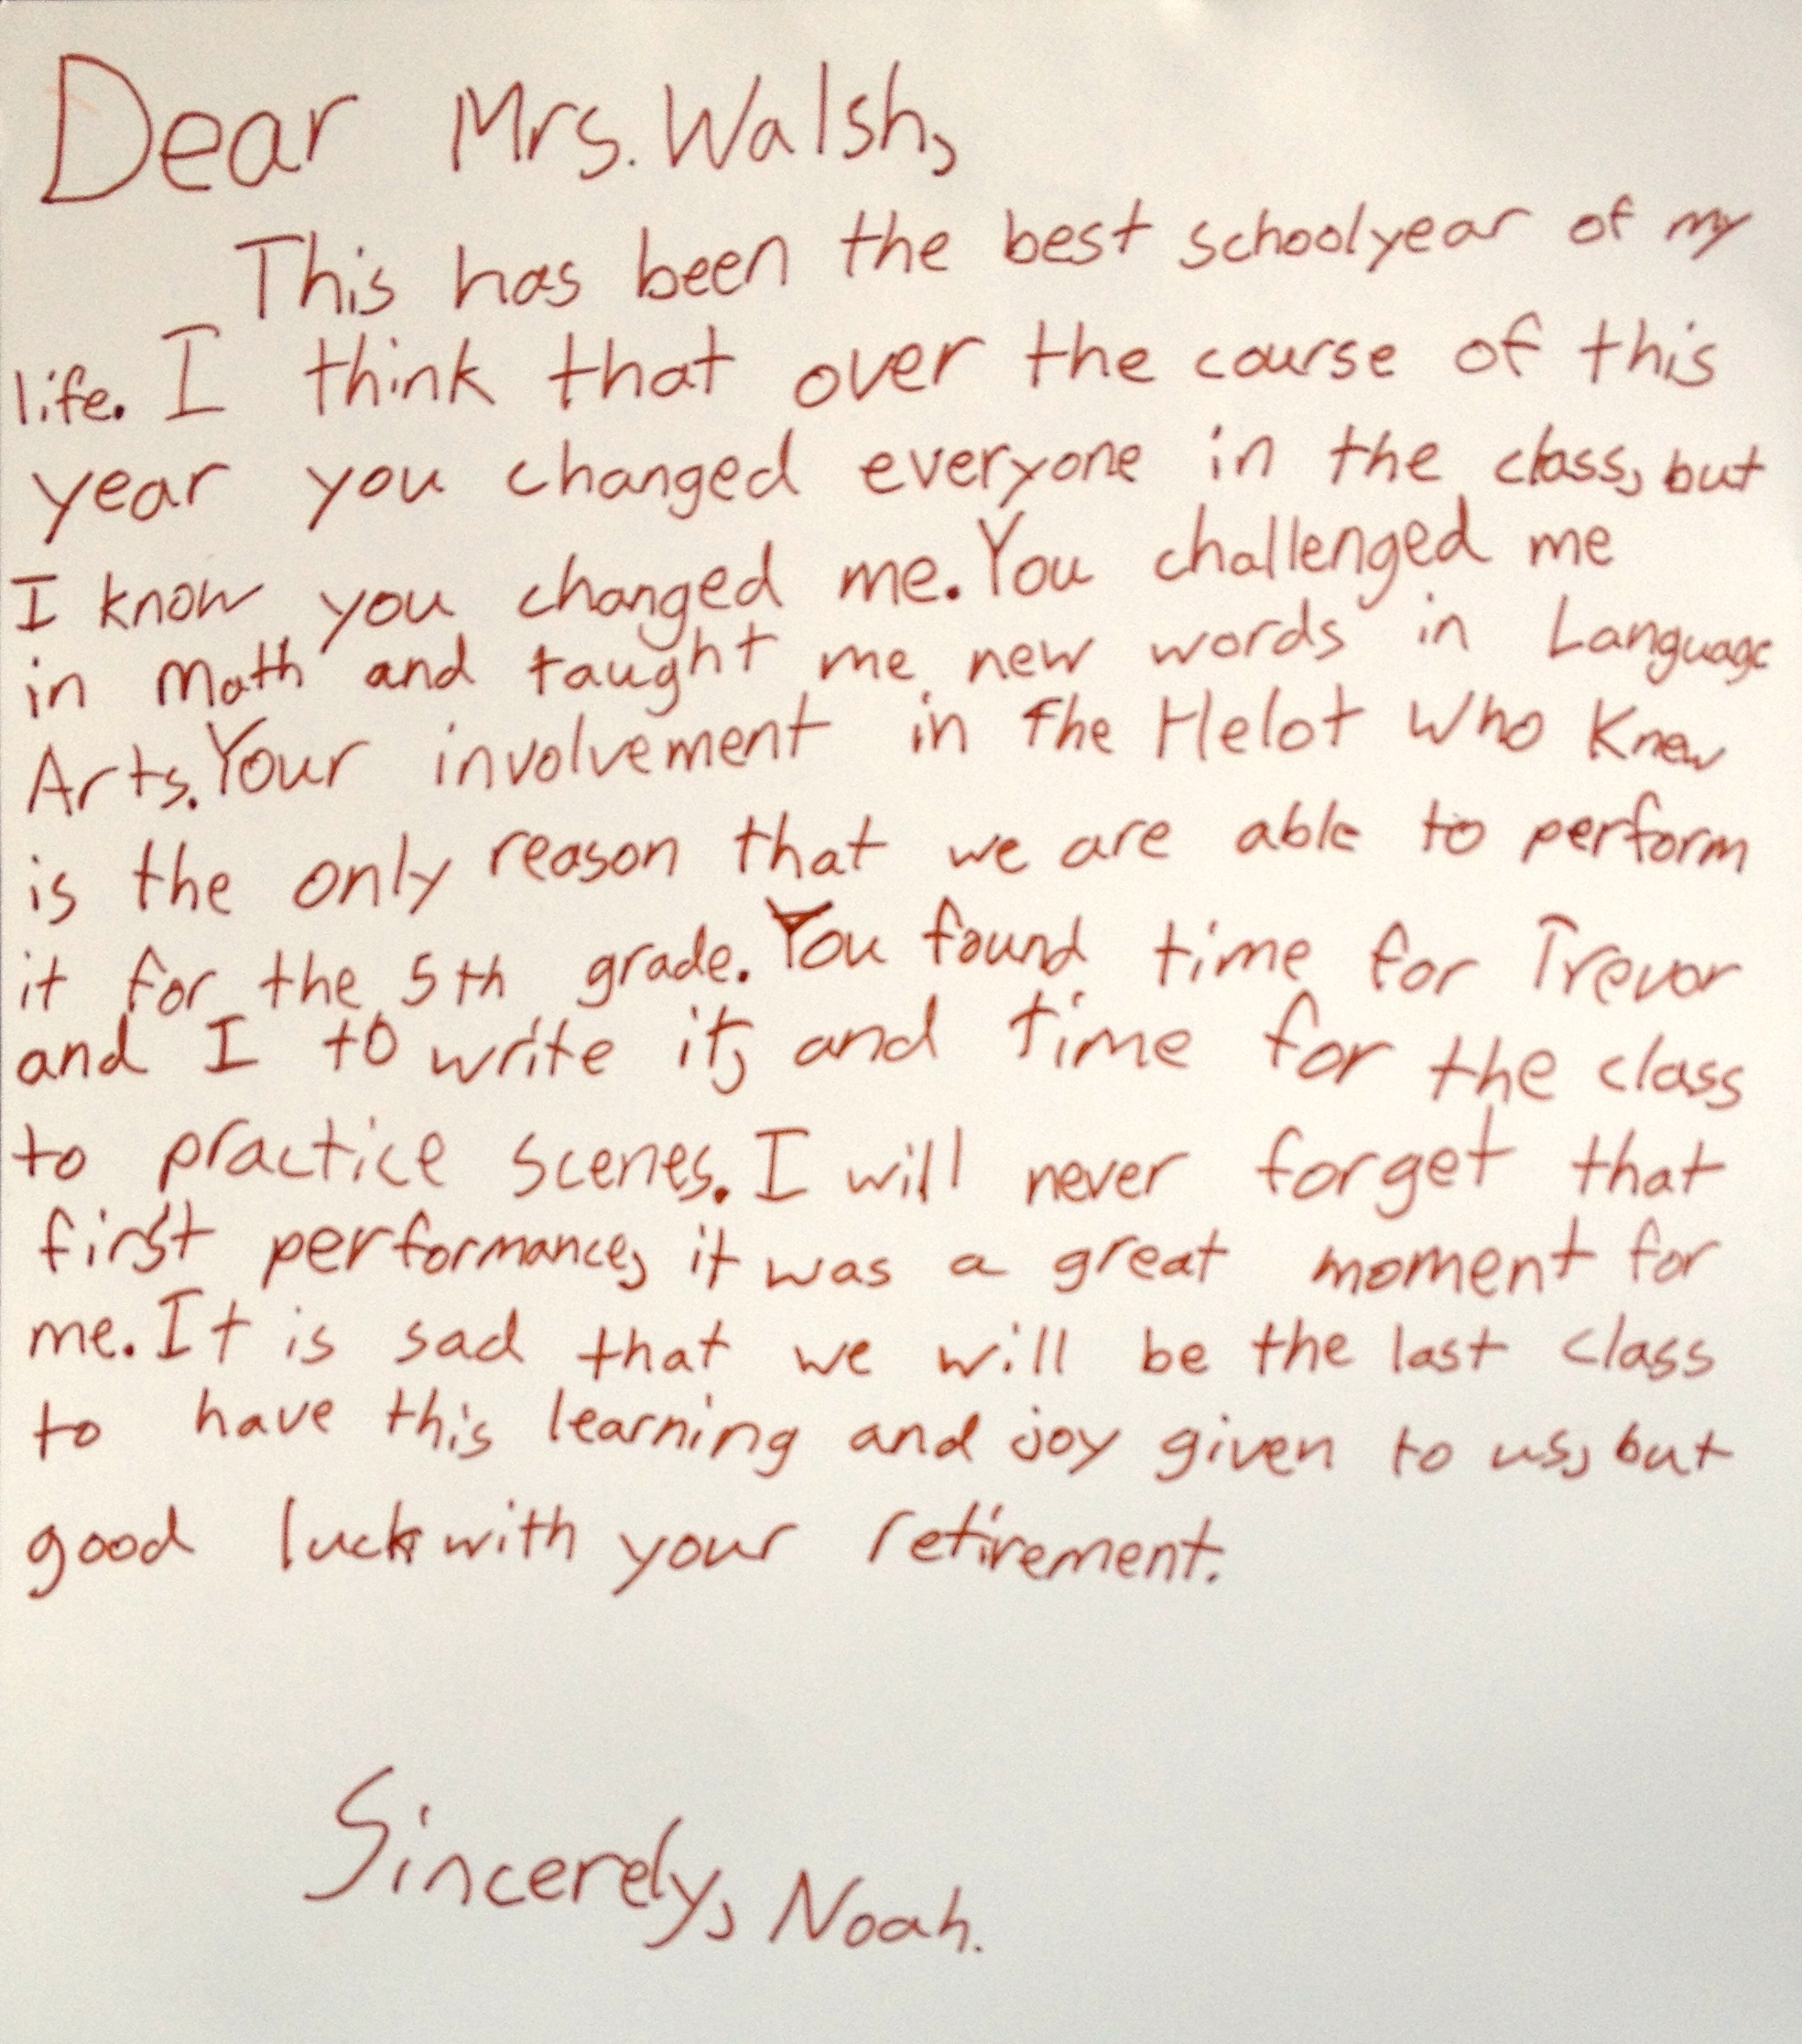 Dear Mrs. Walsh,
This has been the best schoolyear of my
life. I think that over the course of this
year you changed everyone in the class, but
I know you changed me. You challenged me
in Math and taught me new words in Language
Arts. Your involvement in The Helot Who Knew
is the only reason that we are able to perform
it for the 5th grade. You found time for Trevor
and I to write it, and time for the class
to practice scenes. I will never forget that
first performance, it was a great moment for
me. It is sad that we will be the last class
to have this learning and joy given to us, but
good luck with your retirement.
Sincerely, Noah.